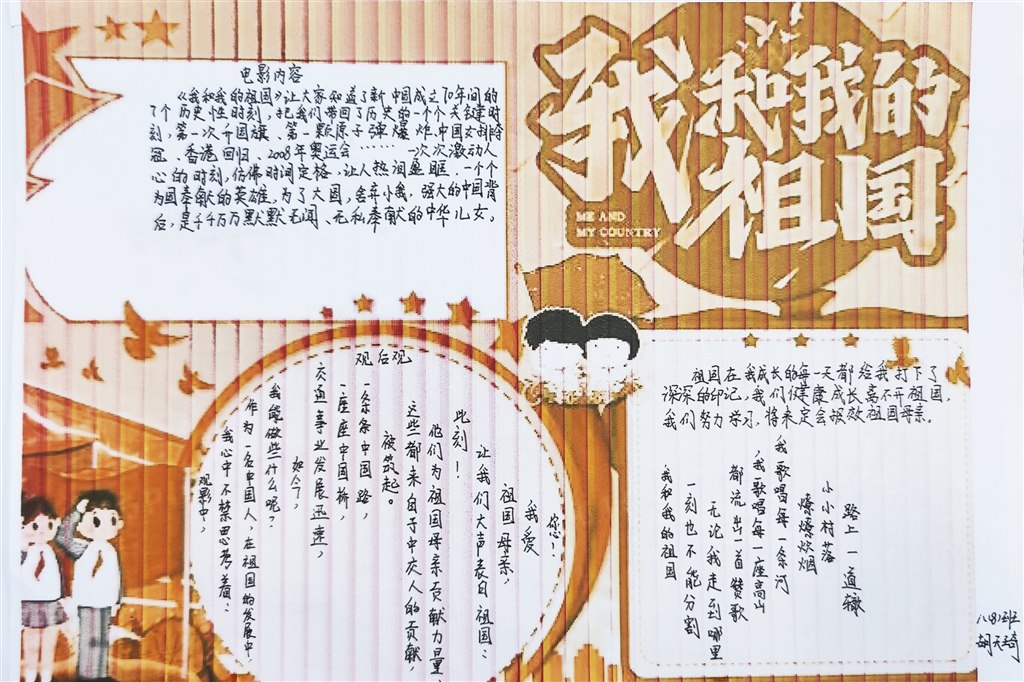 我和我的
祖国
ME AND
MY COUNTRY
电影内容
《我和我的祖国》让大家知道了新中国成立70年间的
7个历史性时刻,把我们带回了历史的一个个关键时
刻,第一次升国旗、第一颗原子弹爆炸、中国女排夺
冠、香港回归、2008年奥运会……一次次激动人
心的时刻,仿佛时间定格,让人热泪盈眶,一个个
为国奉献的英雄,为了大国,舍弃小我,强大的中国背
后,是千千万万默默无闻、无私奉献的中华儿女。
观后观
观影中,
我心中不禁思考着:
作为一名中国人,在祖国的发展中,
我能做些什么呢?
如今,
交通事业发展迅速,
一座座中国桥,
一条条中国路,
被筑起。
这些都来自于中交人的贡献,
他们为祖国母亲贡献力量,
此刻!
让我们大声表白祖国:
祖国母亲,
我爱
您!
祖国在我成长的每一天都给我打下了
深深的印记,我们健康成长离不开祖国,
我们努力学习,将来定会报效祖国母亲。
我和我的祖国
一刻也不能分割
无论我走到哪里
都流出一首赞歌
我歌唱每一座高山
我歌唱每一条河
燎燎炊烟
小小村落
路上一道辙
八(8)班
胡天琦